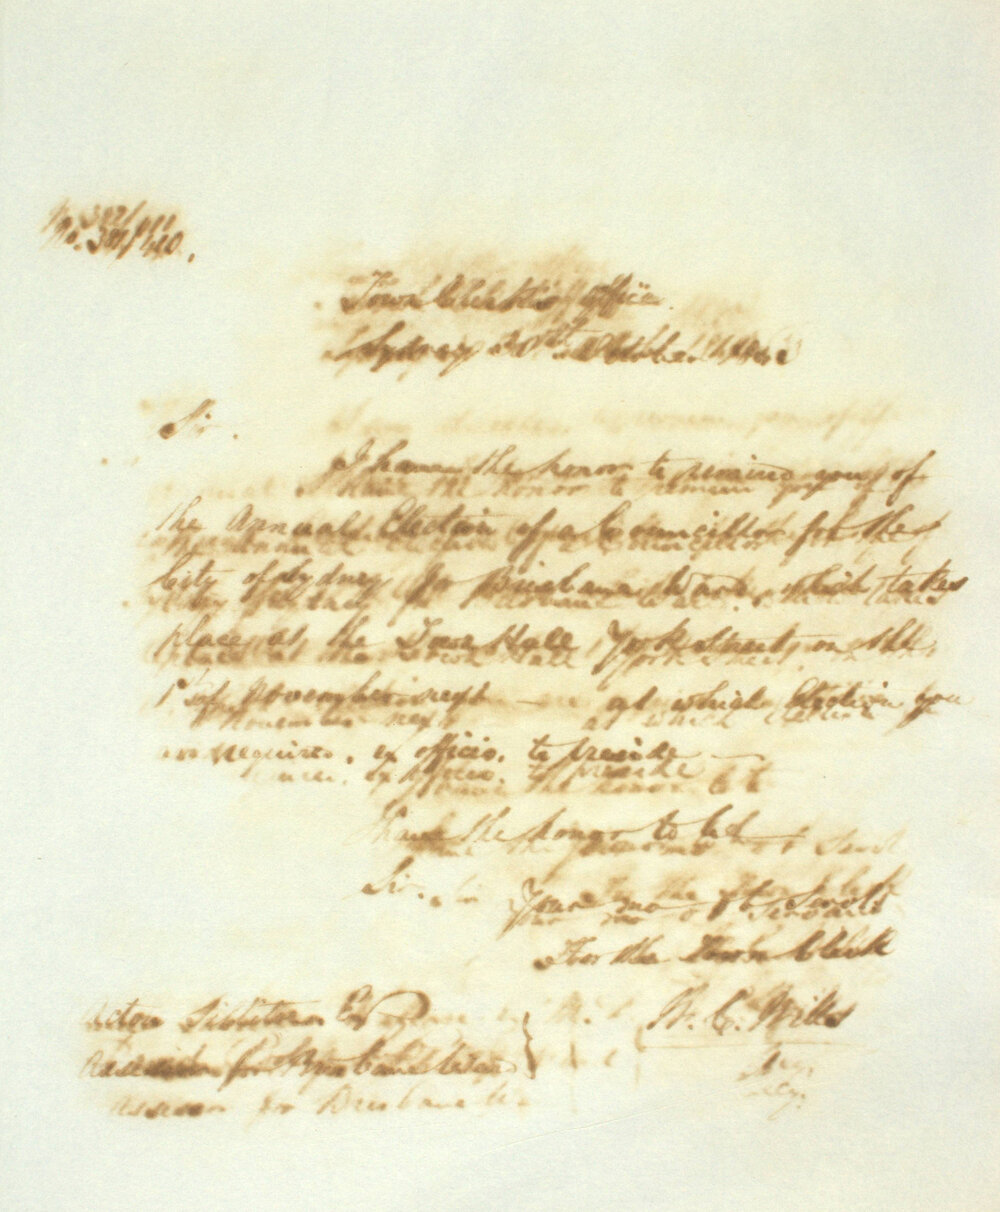 Town Clerk's Office
Sydney 30th October
Sir
I have the honor to remind you of
the Annual Election of a Councillor for the
City of Sydney for Brisbane Ward, which takes
place at the Town Hall, York Street, on the
1st of November next at which Election you
are required, ex officio, to preside
I have the honor to be
Sir,
Your mo Obt Servt
For the Town Clerk
W. C. Wills
Acton Sillitoe Esq
for Brisbane Ward